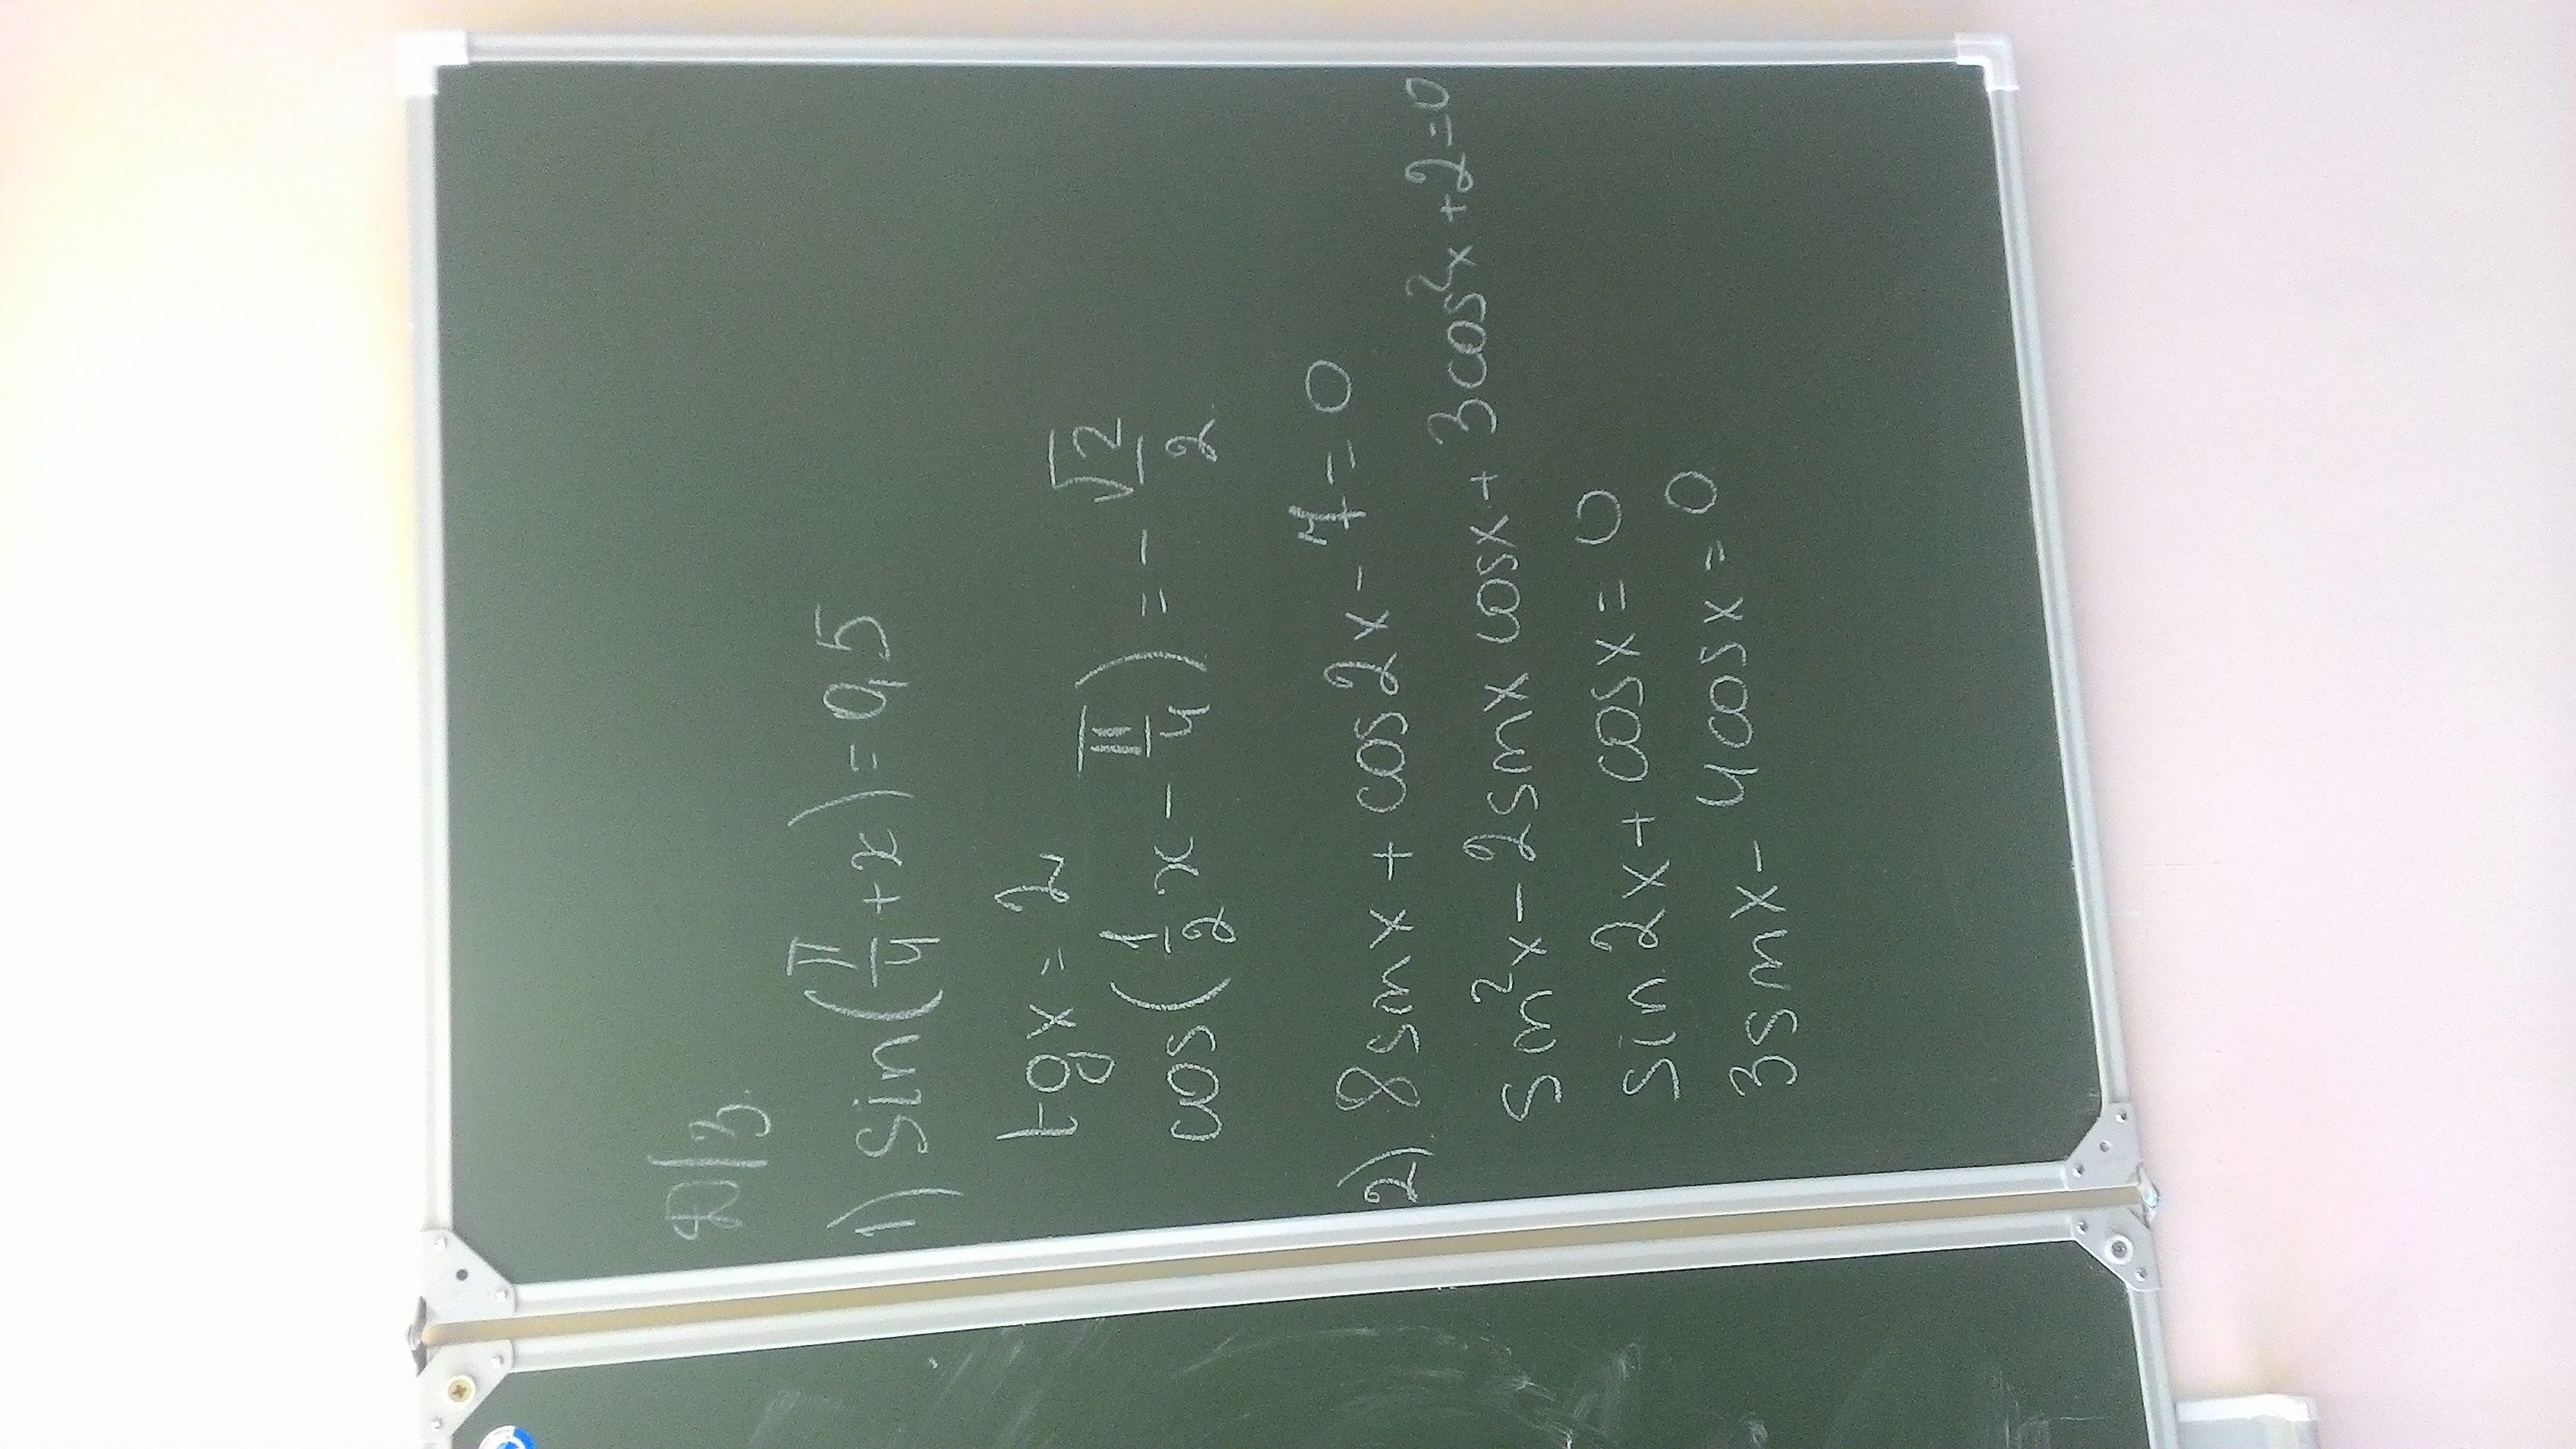 Д/З.
1) sin(π/4 + x) = 0,5
tgx = 2
cos(1/2 x - π/4) = - √2/2
2). 8sinx + cos2x - 7 = 0
sin²x - 2sinx cosx + 3cos²x + 2 = 0
sin2x + cosx = 0
3sinx - 4cosx = 0